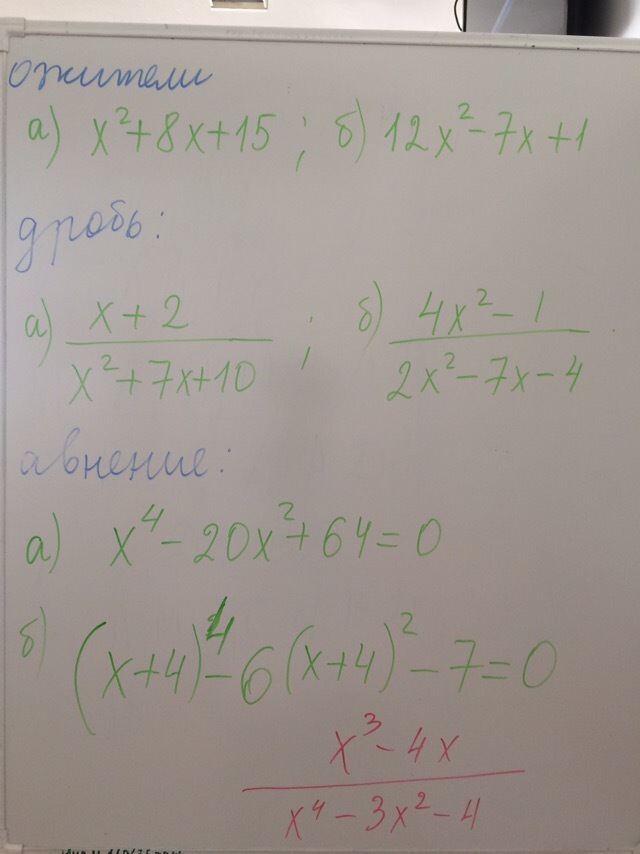 ожители
а) x²+8x+15 ; б) 12x²-7x+1
дробь:
а) x+2 / x²+7x+10 ; б) 4x²-1 / 2x²-7x-4
авнение:
а) x⁴-20x²+64=0
б) (x+4)⁴-6(x+4)²-7=0
x³-4x / x⁴-3x²-4